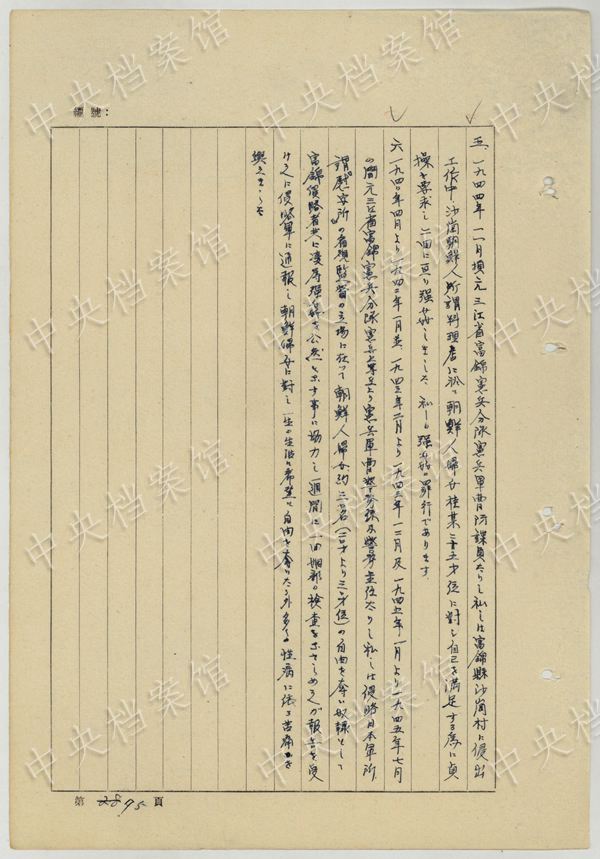 編號:
五、一九四四年一一月頃元三江省富錦憲兵分隊憲兵軍曹防諜員たりし私しは富錦縣沙崗村に侵出
工作中沙崗朝鮮人所謂料理店に於て朝鮮人婦女桂某二十五才位に対し自己を満足する為に貞
操を要求し二回に亘り強姦しました 私しの強姦の罪行であります。
六、一九四〇年四月より一九四二年一月並一九四三年二月より一九四三年一二月及一九四五年一月より一九四五年七月
の間元三江省富錦憲兵分隊憲兵上等兵より憲兵軍曹警務係及警務主任たりし私しは侵略日本軍所
謂『慰安所』の看視監督の立場に在って朝鮮人婦女約三〇名の自由を奪い奴隷として
富錦侵略者共に凌辱強姦を公然と 事に協力し一週間に一回 検査を 報告を受
侵略軍に通報し朝鮮婦女に対し一生の生活と希望と自由を奪いたる外多くの性病に 苦痛を
與えました
第2895頁
中央档案馆